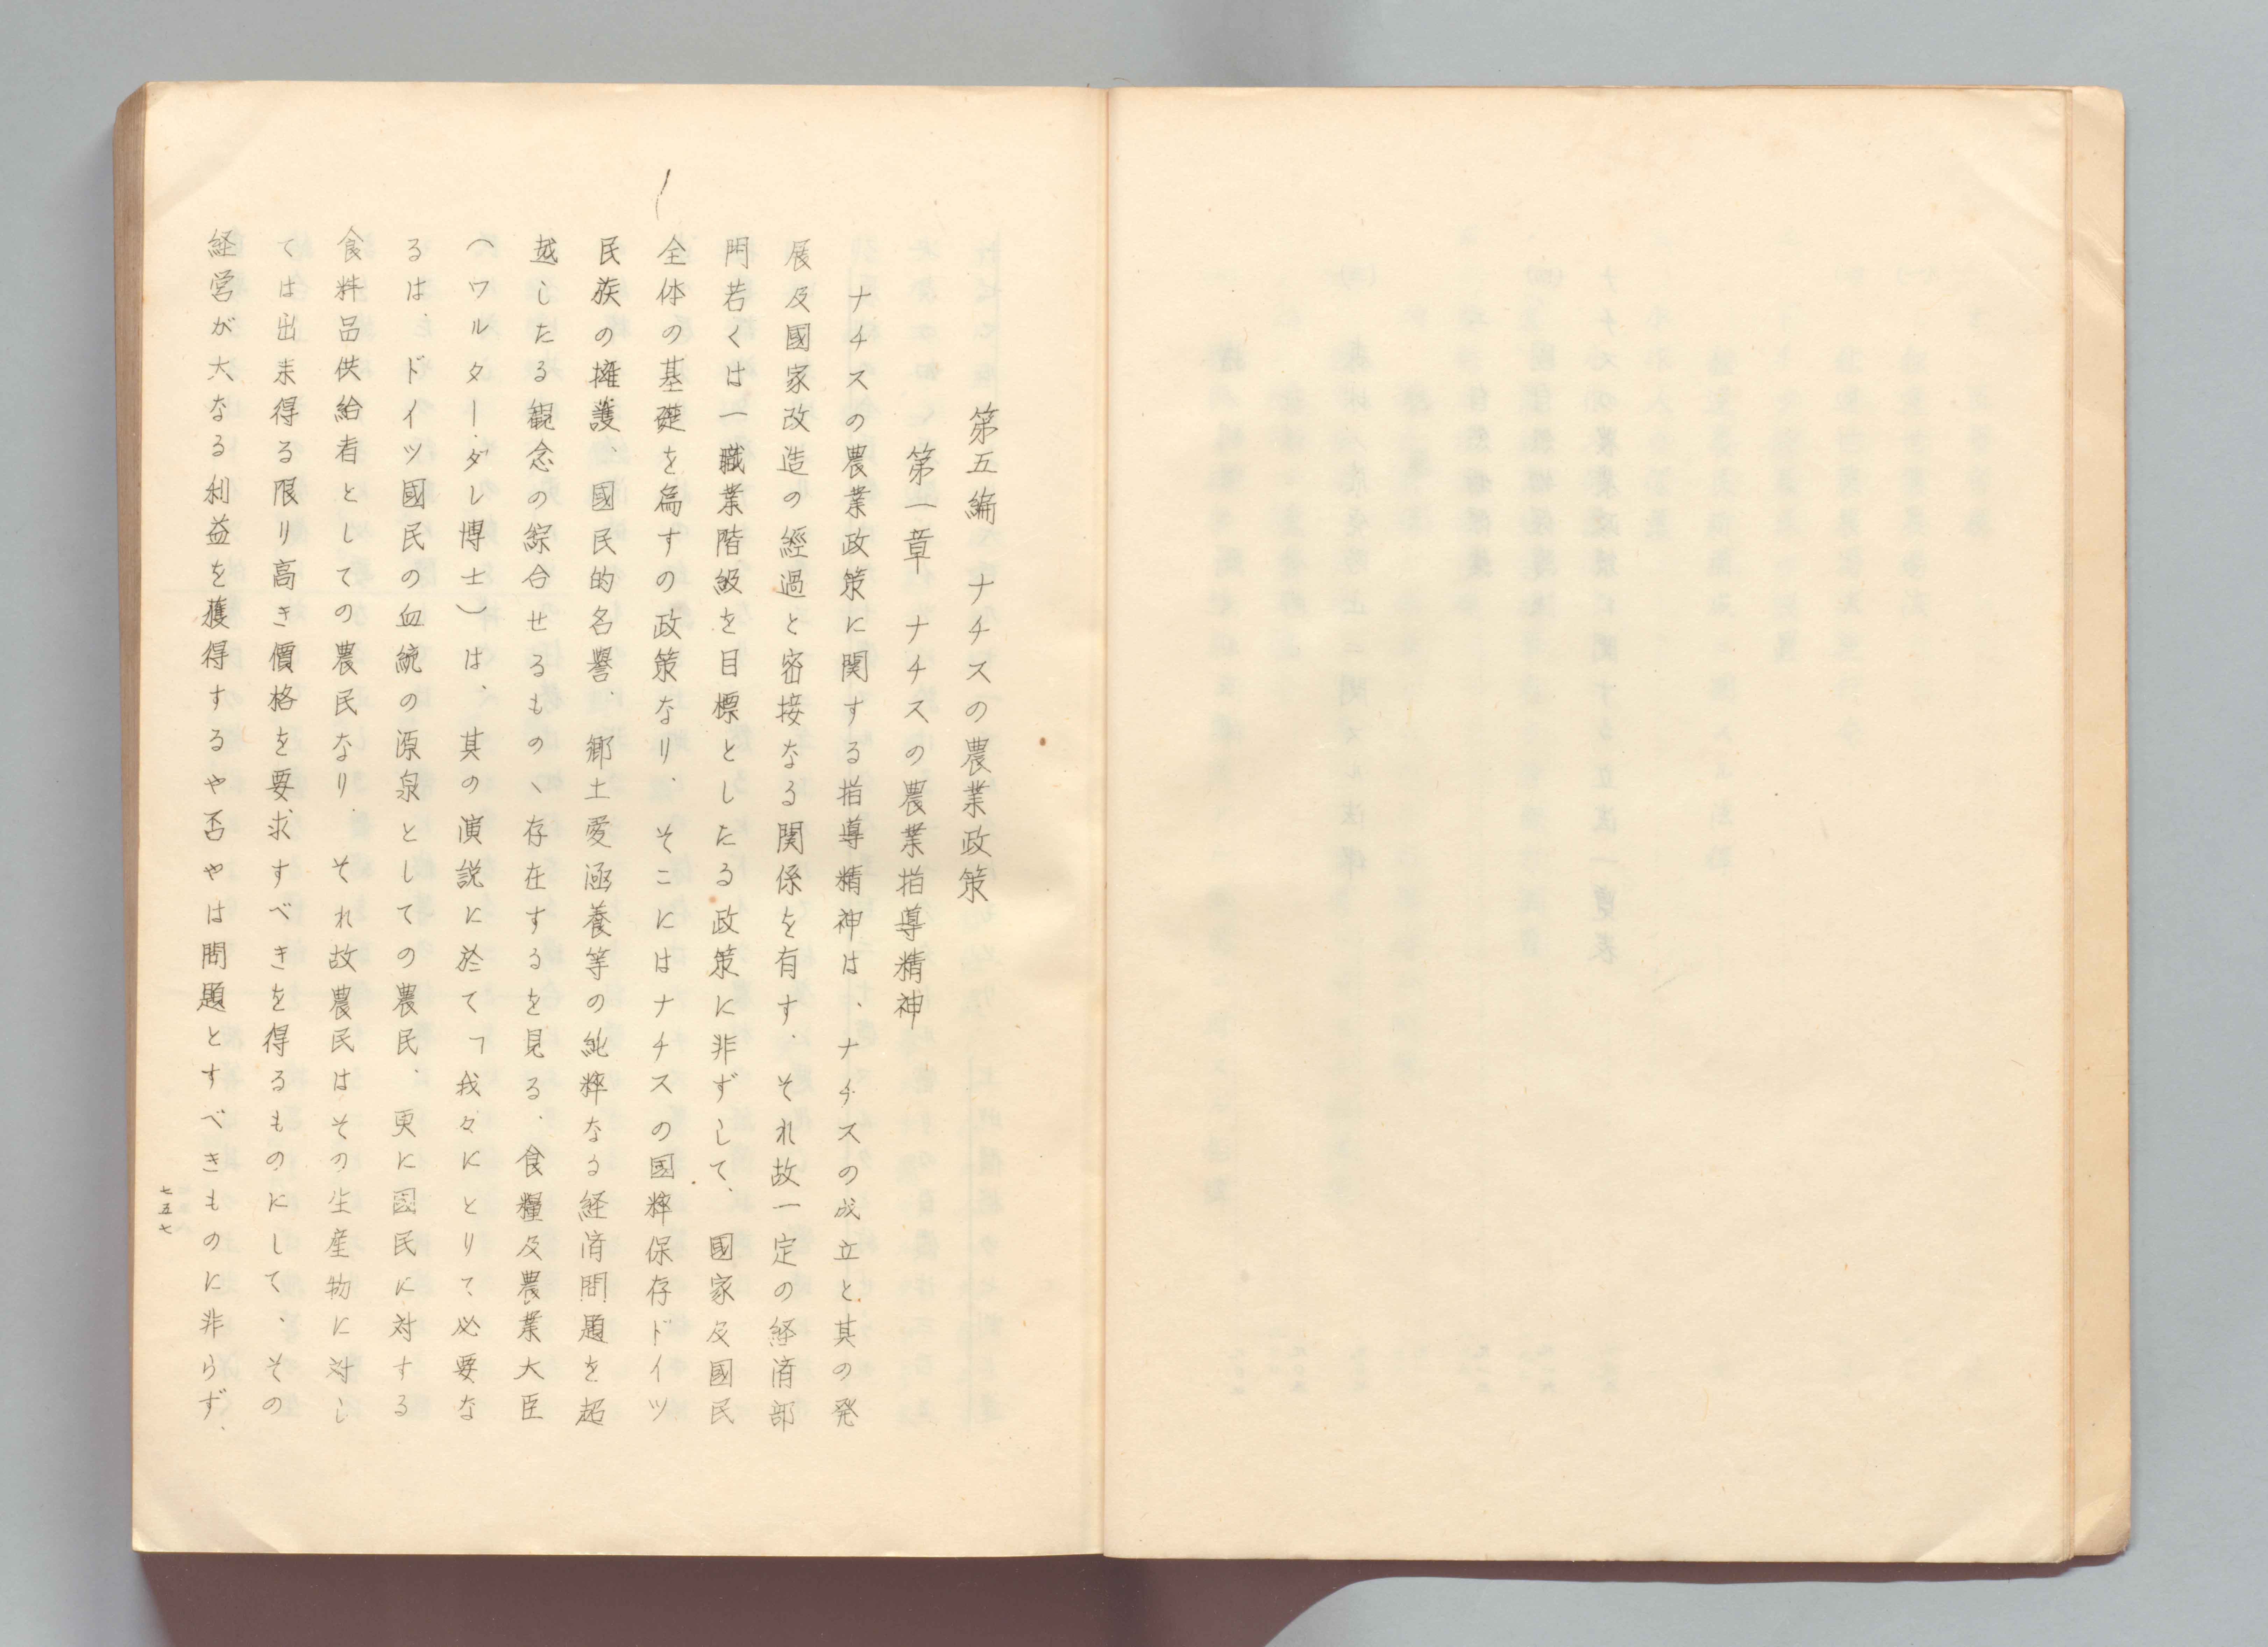 第五編　ナチスの農業政策
第一章　ナチスの農業指導精神
ナチスの農業政策に関する指導精神は、ナチスの成立と其の発
展及國家改造の經過と密接なる関係を有す。それ故一定の経済部
門若くは一職業階級を目標としたる政策に非ずして、國家及國民
全体の基礎を為すの政策なり、そこにはナチスの国粋保存ドイツ
民族の擁護、國民的名譽、郷土愛涵養等の純粋なる経済問題を超
越したる観念の綜合せるものヽ存在するを見る、食糧及農業大臣
（ワルター・ダレ博士）は、其の演説に於て「我々にとりて必要な
るは、ドイツ國民の血統の源泉としての農民、更に國民に対する
食料品供給者としての農民なり、それ故農民はその生産物に対し
ては出来得る限り高き價格を要求すべきを得るものにして、その
経営が大なる利益を獲得するや否やは問題とすべきものに非らず、
七五七